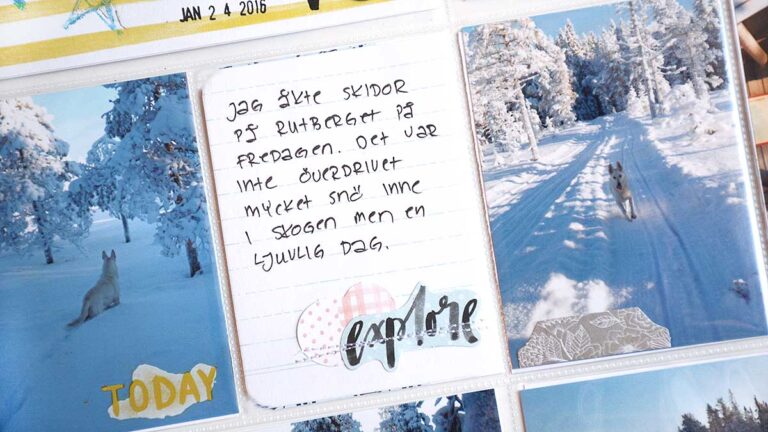 JAN 24 2016
JAG ÅKTE SKIDOR
PÅ RUTBERGET PÅ
FREDAGEN. DET VAR
INTE ÖVERDRIVET
MYCKET SNÖ INNE
I SKOGEN MEN EN
LJUVLIG DAG.
explore
TODAY